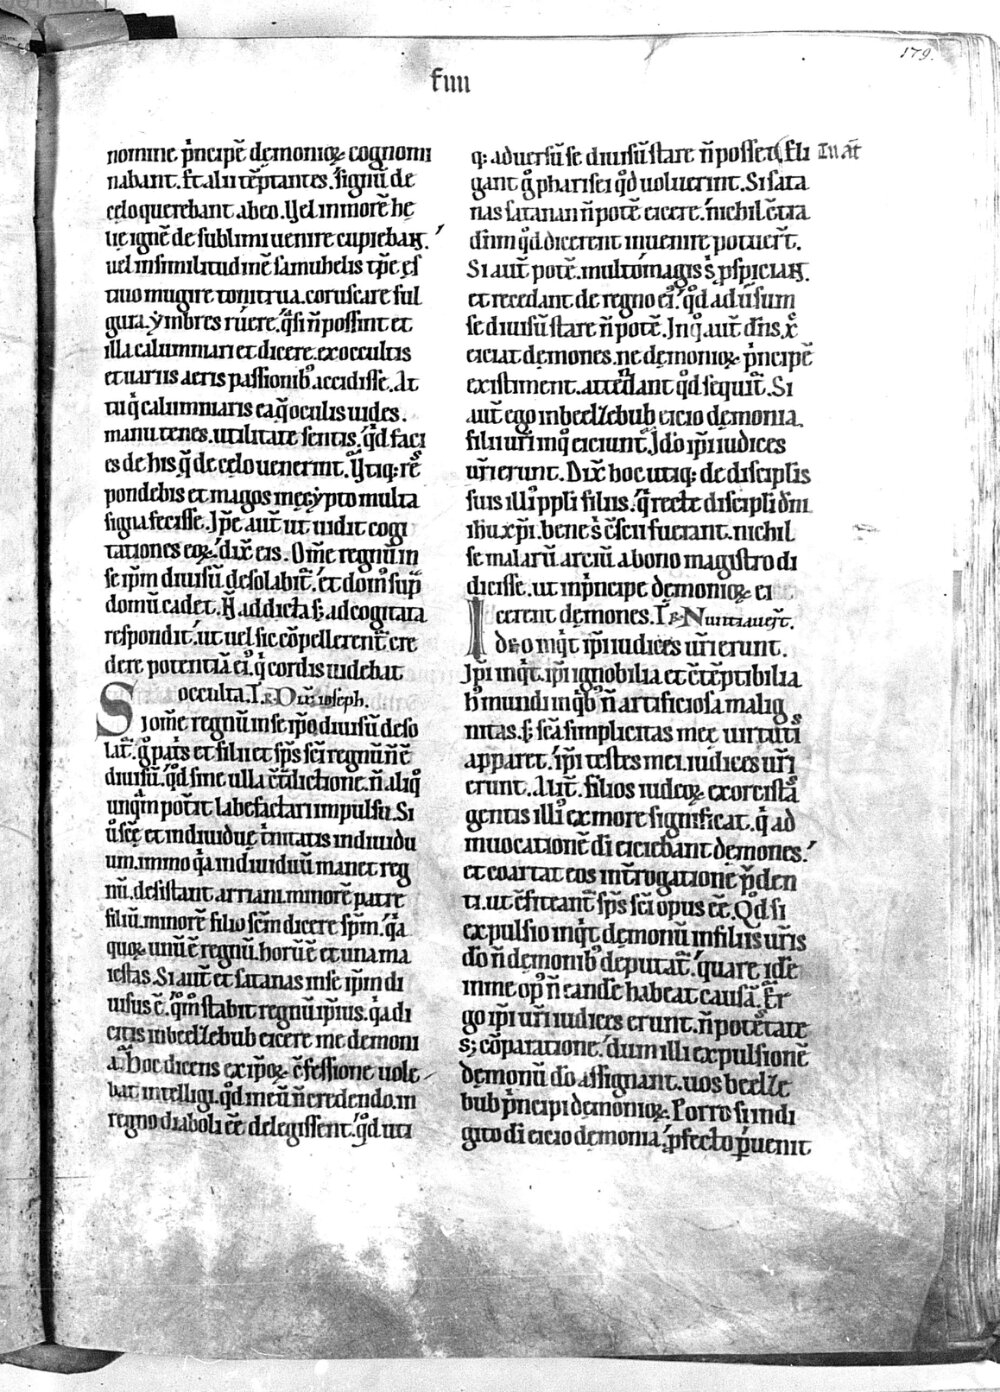 179.
fıııı
nomine p̍ncipẽ demonioꝝ cognomi
nabant. Et alii tẽptantes. signũ de
celo querebant ab eo. Vel in morẽ he
lie ignẽ de sublimi uenire cupiebaɴ.
uel in similitudinẽ samuhelis tp̃e es
tiuo mugire tonitrua. coruscare ful
gura. ẏmbres ruere. q̍si ñ possint et
illa calumniari et dicere. ex occultis
et uariis aeris passionib; accidisse. At
tu q̍ calumniaris ea q̨ oculis uides.
manu tenes. utilitate sentis. q̍d faci
es de his q̨ de celo uenerint. Vtiq: rẽ
pondebis et magos in egẏpto multa
signa fecisse. Ip̃e aut̃ ut uidit cogi
tationes eoꝝ. dix̃ eis. Om̃e regnũ in
se ip̃m diuisũ desolabit̃. et domꝰ sup̃
domũ cadet. Ñ ad dicta sꝫ ad cogitata
respondit. ut uel sic cõpellerent̃ cre
dere potentiã eiꝰ. q̍ cordis uidebat
occulta. Iꝶ Dix̃ ioseph.
Si om̃e regnũ in se ip̃o diuisũ deso
lat̃. g̊ patris et filii et sp̃s sc̃i regnũ ñ ẽ
diuisũ. q̍d sine ulla c̃tradictione. ñ aliq̊
unq̃m pot̃it labefactari impulsu. Si
ũ sc̃ę et indiuiduę t̍nitatis indiuidu
um. immo q̍a indiuiduũ manet reg
nũ. desistant arriani. minorẽ patre
filiũ. minorẽ filio sc̃m dicere sp̃m. q̍a
quoꝝ unũ ẽ regnũ. horũ ẽ et una ma
iestas. Si aut̃ et satanas in se ip̃m di
uisus ẽ. q̊m̊ stabit regnũ ip̃ius. q̍a di
citis in beelzebub eicere me demoni
a. Hoc dicens ex ip̃oꝝ c̃fessione uole
bat intelligi. q̍d in eũ ñ credendo. in
regno diaboli eẽ delegissent. q̊d uti
q: aduersũ se diuisũ stare ñ posset. Eli
In at̃
gant g̊ pharisei q̍d uoluerint. Si sata
nas satanan ñ potẽ eicere. nichil c̃tra
dñm q̍d dicerent inuenire potuer̃t.
Si aut̃ potẽ. multo magis s; p̃spiciaɴ.
et recedant de regno eiꝰ. q̊d aduersum
se diuisũ stare ñ potẽ. In q̊ aut̃ dñs. x̃
eiciat demones. ne demonioꝝ p̍ncipẽ
existiment. attendant q̊d sequit̃. Si
aut̃ ego in beelzebub eicio demonia.
filii ur̃i in q̊ eiciunt. Ido ip̃i iudices
ur̃i erunt. Dix̃ hoc utiq: de discip̃lis
suis illiꝰ pp̃li filiis. q̍ recte discip̃li dñi
ihu xp̃i. bene s; c̃scii fuerant. nichil
se malarũ arciũ a bono magistro di
dicisse. ut in p̍ncipe demonioꝝ ei
cerent demones. Iꝶ Nuntiauer̃t.
Ideo inq̍t ip̃i iudices ur̃i erunt.
Ip̃i inq̍t. ip̃i ignobilia et c̃tẽptibilia
hꝰ mundi in q̍bꝰ ñ artificiosa malig
nitas. sꝫ sc̃a simplicitas meę uirtuti
apparet. ip̃i testes mei. iudices ur̃i
erunt. Aut̃. filios iudeoꝝ exorcistã
gentis illiꝰ ex more significat. q̍ ad
inuocationẽ di eiciebant demones.
et coartat eos int̃rogatione p̃den
ti. ut c̃fiteant̃ sp̃s sc̃i opus eẽ. Q̊d si
expulsio inq̍t demonũ in filiis ur̃is
dõ ñ demonibꝰ deputat̃. quare idẽ
in me opꝰ ñ eandẽ habeat causã. Er
go ip̃i ur̃i iudices erunt. ñ potestate
s; cõparatione. dum illi expulsionẽ
demonũ dõ assignant. uos beelze
bub p̍ncipi demonioꝝ. Porro si in di
gito di eicio demonia. p̃fecto p̃uenit